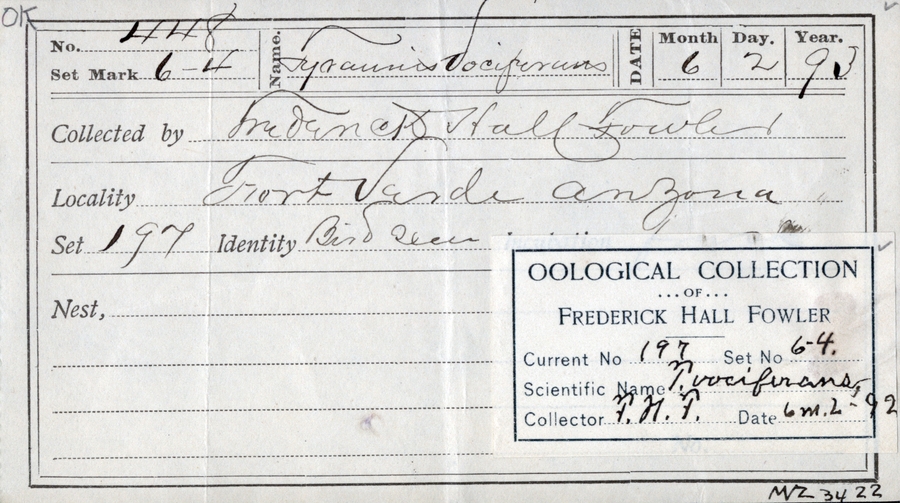 OK
No. 448 Name. Tyrannus Vociferans DATE Month Day. Year.
Set Mark 6-4 6 2 93
Collected by Frederick Hall Fowler
Locality Fort Verde Arizona
Set 197 Identity Bird seen
Nest,
OOLOGICAL COLLECTION
...OF...
FREDERICK HALL FOWLER
Current No 197 Set No 6-4.
Scientific Name T. vociferans,
Collector F. H. F. Date 6 m. 2-92
MVZ 3422